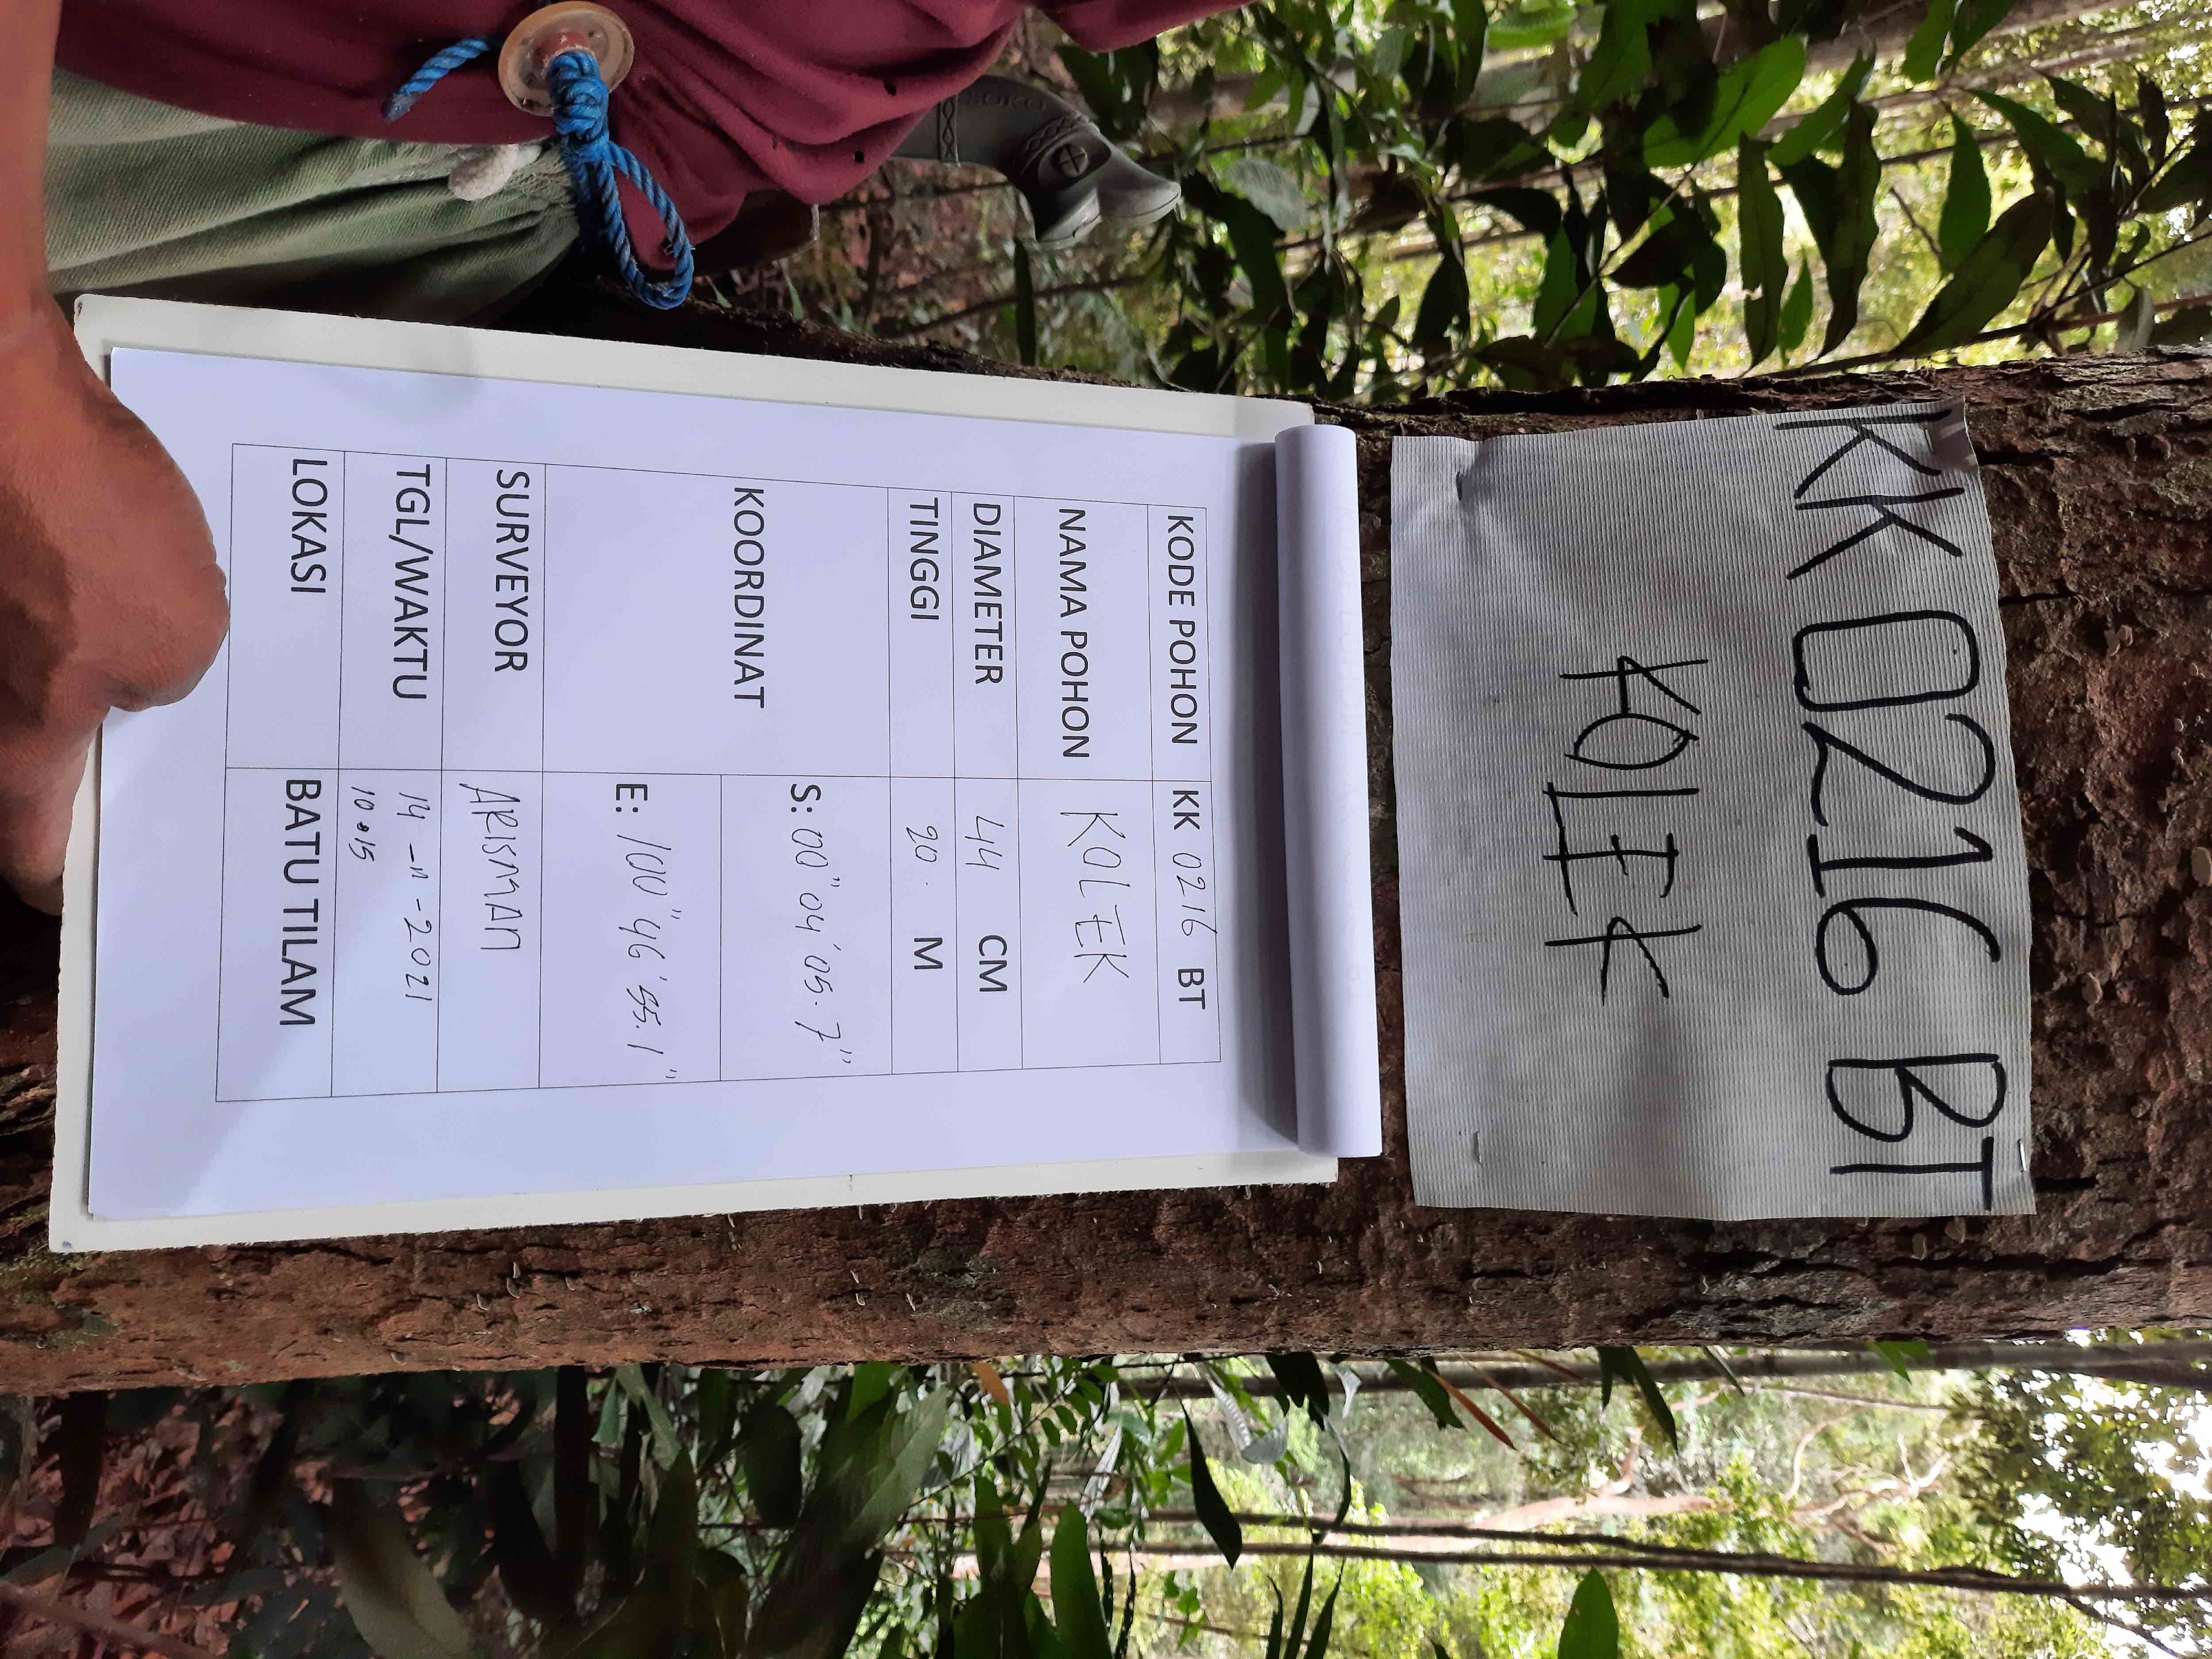 KK 0216 BT
KOLEK
KODE POHON KK 0216 BT
NAMA POHON KOLEK
DIAMETER 44 CM
TINGGI 20. M
KOORDINAT S: 00" 04' 05.7"
E: 100" 46' 55.1"
SURVEYOR ARISMAN
TGL/WAKTU 14 -11 -2021
10.15
LOKASI BATU TILAM